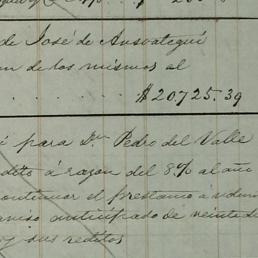 de José de Ansoategui
de los mismos al
$20,725.39
para Dn Pedro del Valle
dito á razon del 8% al año
continuar el prestamo á
aviso anticipado de veinte d
y sus reditos